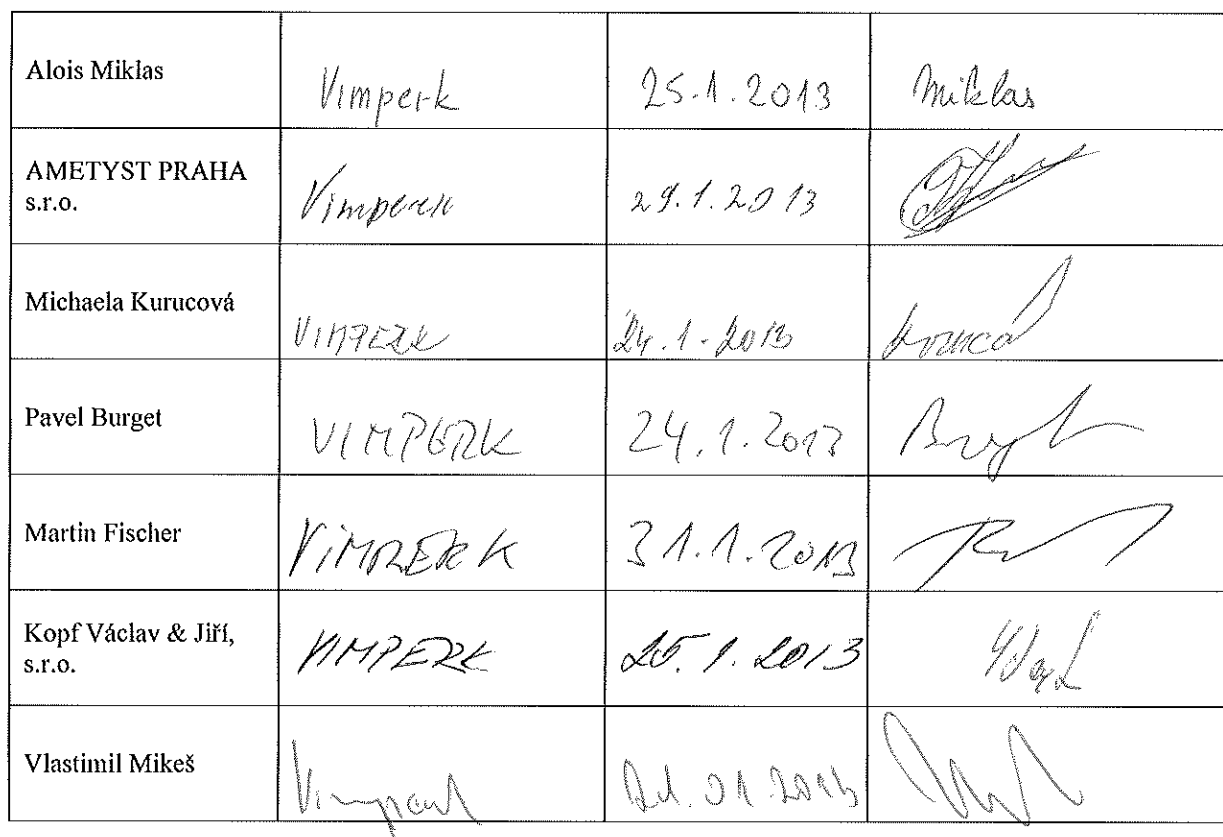 Alois Miklas Vimperk 25.1.2013 Miklas
AMETYST PRAHA
s.r.o. Vimperk 29.1.2013
Michaela Kurucová VIMPERK 24.1.2013
Pavel Burget VIMPERK 24.1.2013
Martin Fischer VIMPERK 31.1.2013
Kopf Václav & Jiří,
s.r.o. VIMPERK 25.1.2013
Vlastimil Mikeš Vimperk